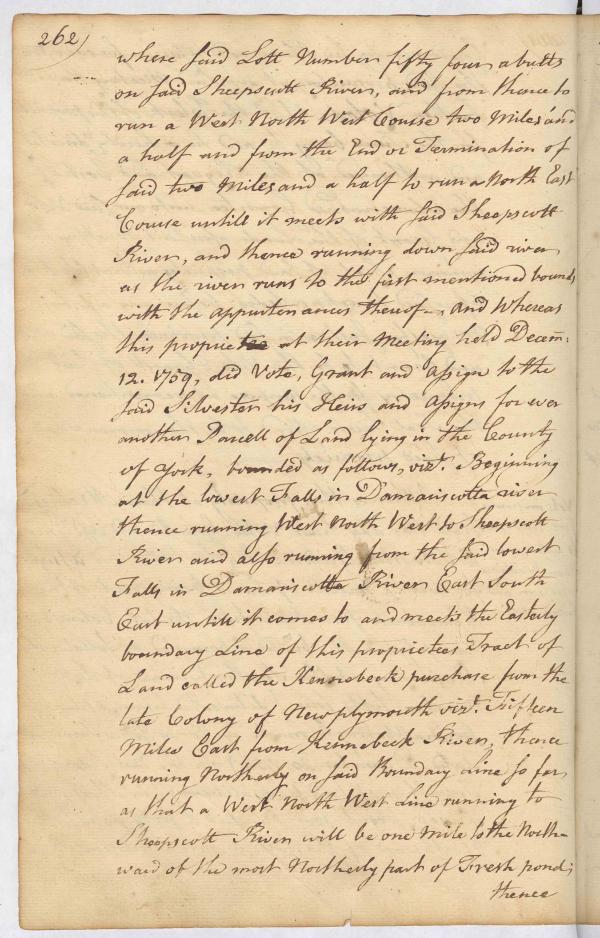 262)
where said Lott Number fifty four abutts
on said Sheepscott River, and from thence to
run a West North West Course two Miles and
a half and from the End or Termination of
said two Miles and a half to run a North East
Course untill it meets with said Sheepscott
River, and thence running down said river
as the river runs to the first mentioned bounds
with the appurtenances thereof, and Whereas
this propriet at their Meeting held Decem:
12. 1759, did Vote, Grant and assign to the
said Silvester his Heirs and assigns for ever
another Parcell of Land lying in the County
of York, bounded as follows, vizt. Beginning
at the lowest Falls in Damariscotta river
thence running West North West to Sheepscott
River and also running from the said lowest
Falls in Damariscotta River East South
East untill it comes to and meets the Easterly
boundary Line of this proprietees Tract of
Land called the Kennebeck purchase from the
late Colony of Newplymouth vizt. Fifteen
Miles East from Kennebeck River, thence
running Northerly on said Boundary Line so far
as that a West North West Line running to
Sheepscott River will be one Mile to the North-
ward of the most Northerly part of Fresh pond;
thence